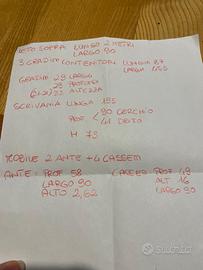 LETO SOPRA LUNGO 2 METRI
LARGO 90
3 GRADINI CONTENITORI LUNGHI 87
LARGHI
GRADINI 29 LARGO
29 PROFONDO
ALTEZZA
SCRIVANIA LUNGA 195
PROF 90 CERCHIO
41 DRITO
H 73
MOBILE 2 ANTE + 4 CASSETTI
ANTE: PROF 58
LARGO 90
ALTO 2,62
PROF 49
ALT 16
LARGO 90
Subito